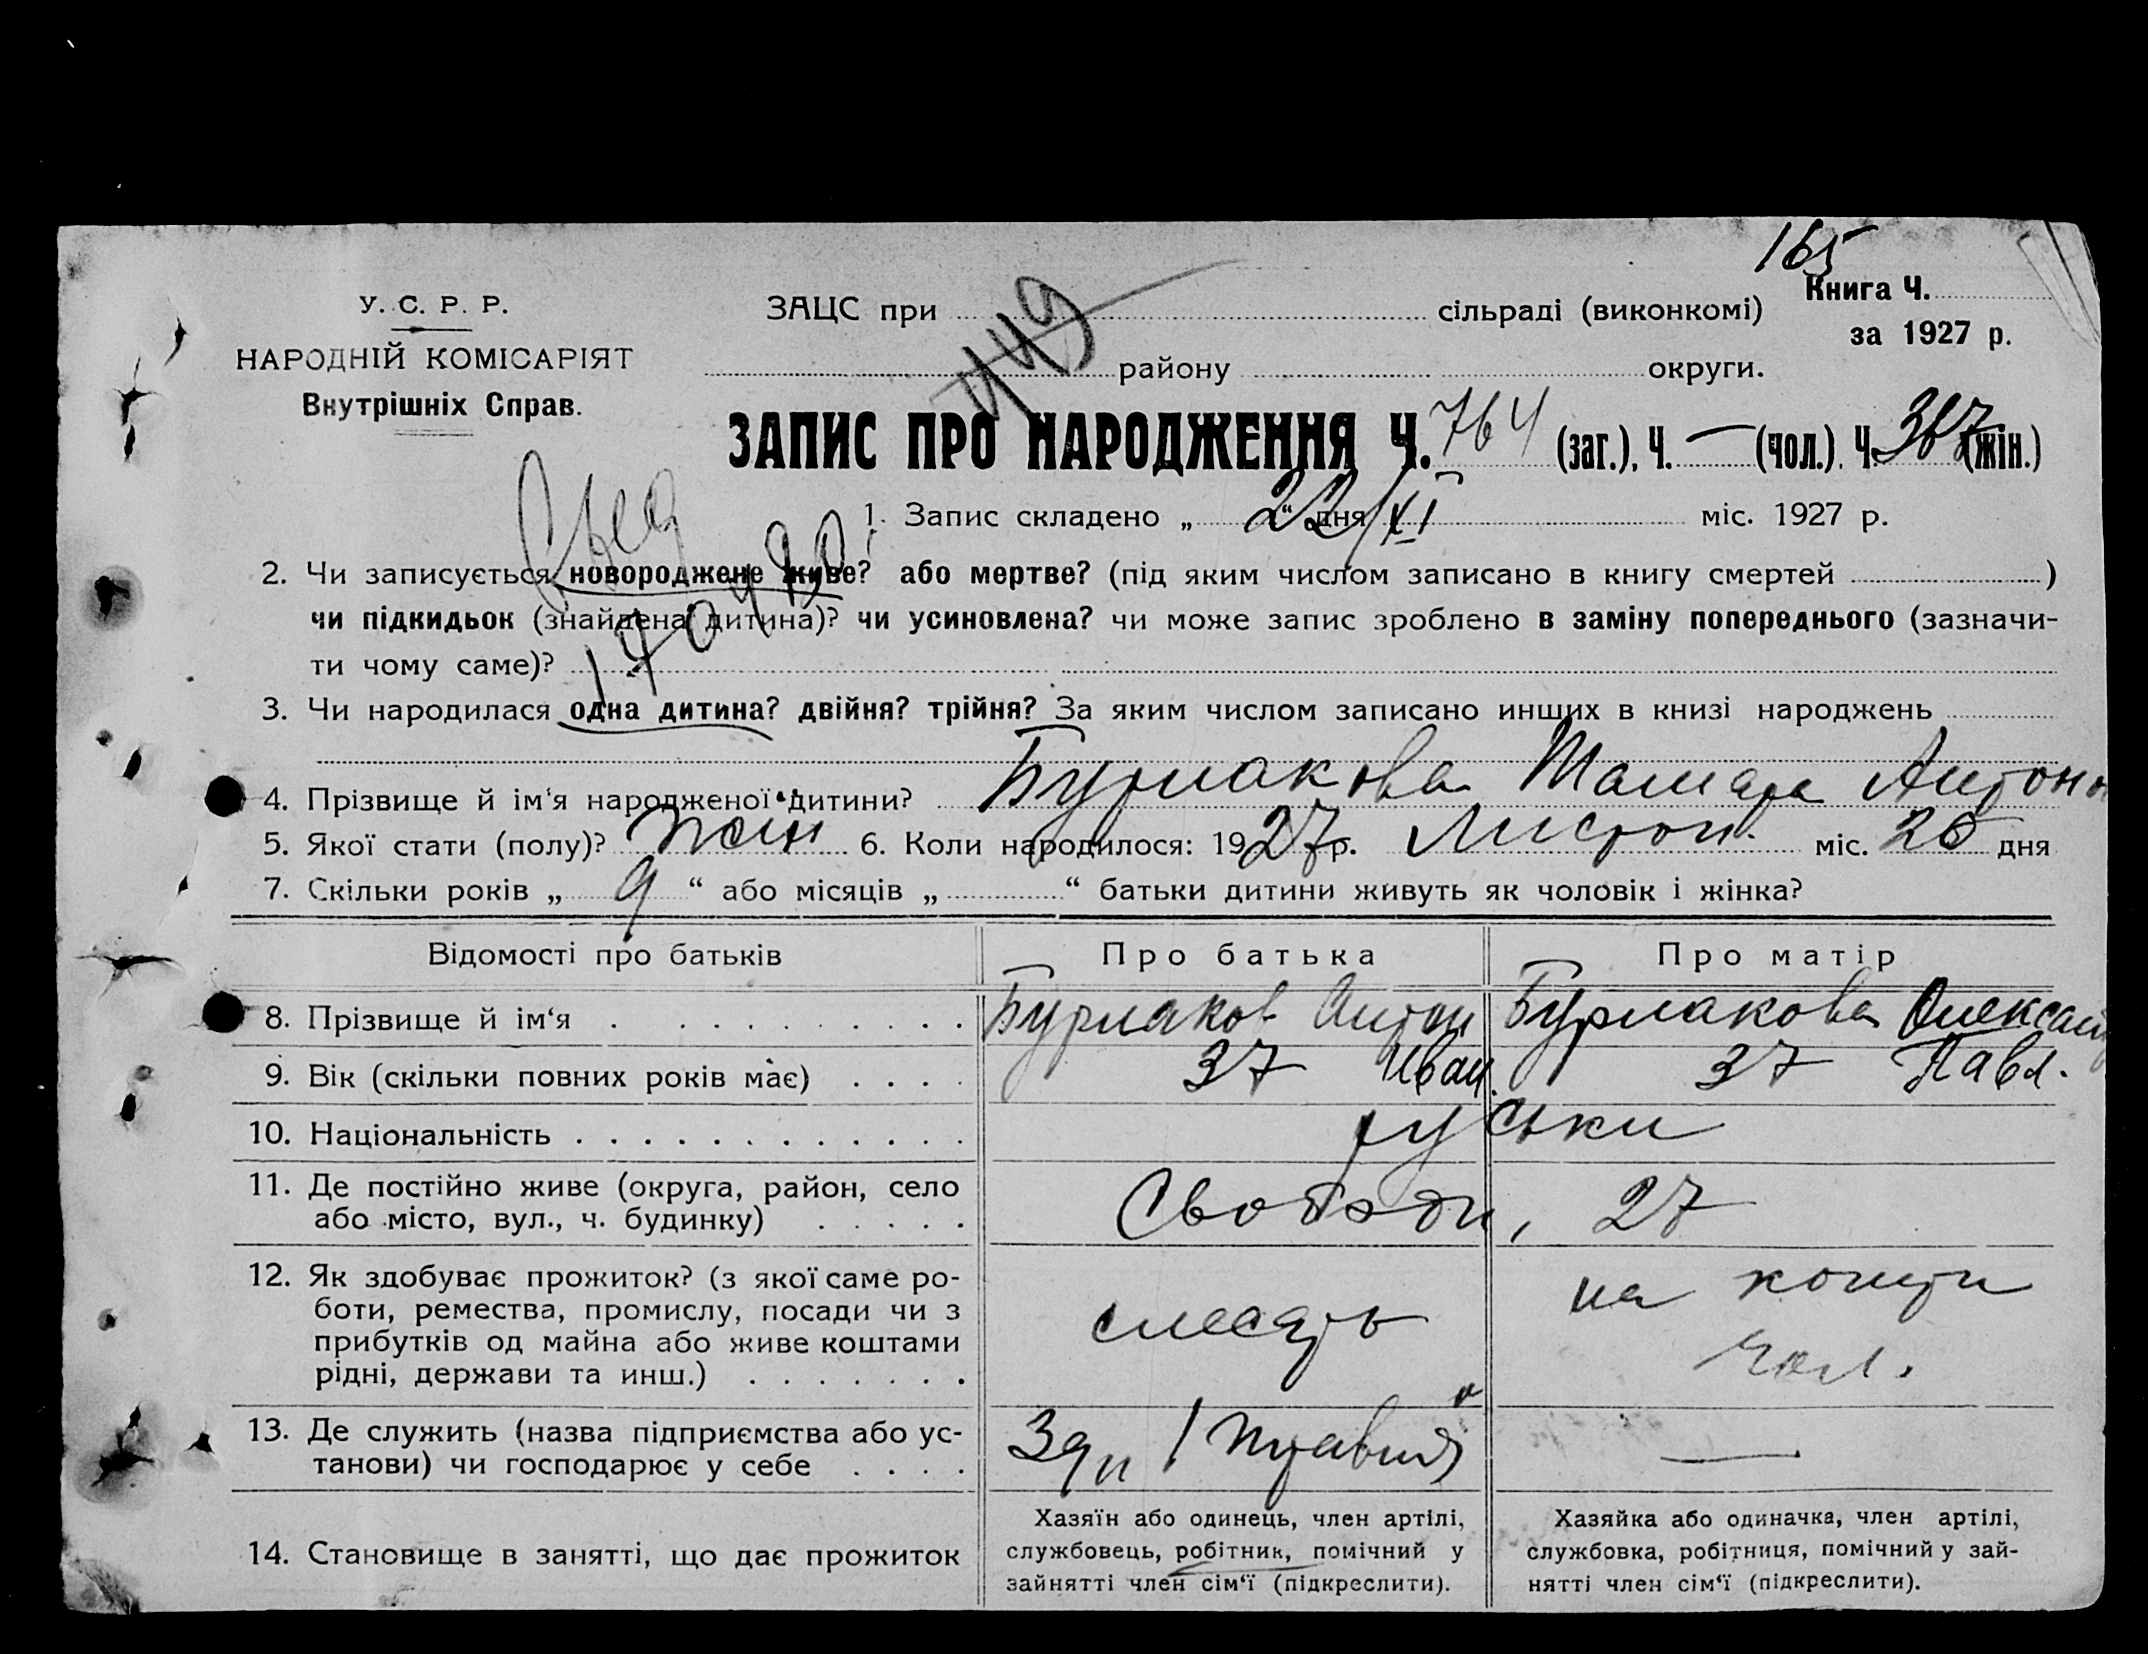 165
У. С. Р. Р.
НАРОДНІЙ КОМІСАРІЯТ
Внутрішніх Справ.
ЗАЦС при сільраді (виконкомі)
Книга Ч.
за 1927 р.
району округи.
ЗАПИС ПРО НАРОДЖЕННЯ Ч. 764 (заг.), Ч. — (чол.). Ч. 367 (жін.)
1. Запис складено „ 22/XI “ дня міс. 1927 р.
2. Чи записується новороджене живе? або мертве? (під яким числом записано в книгу смертей )
чи підкидьок (знайдена дитина)? чи усиновлена? чи може запис зроблено в заміну попереднього (зазначи-
ти чому саме)?
3. Чи народилася одна дитина? двійня? трійня? За яким числом записано инших в книзі народжень
4. Прізвище й ім‘я народженої дитини? Бурлакова Тамара Антон
5. Якої стати (полу)? жін 6. Коли народилося: 1927 р. Листоп. міс. 20 дня
7. Скільки років „ 9 “ або місяців „ “ батьки дитини живуть як чоловік і жінка?
Відомості про батьків Про батька Про матір
8. Прізвище й ім‘я Бурлаков Антон Бурлакова Олександ
9. Вік (скільки повних років має) 37 Иван. 37 Павл.
10. Національність руськи
11. Де постійно живе (округа, район, село
або місто, вул., ч. будинку) Свободи, 27
12. Як здобуває прожиток? (з якої саме ро-
боти, ремества, промислу, посади чи з
прибутків од майна або живе коштами
рідні, держави та инш.)
слесарь
на кошти
чол.
13. Де служить (назва підприємства або ус-
танови) чи господарює у себе —
14. Становище в занятті, що дає прожиток
Хазяїн або одинець, член артілі,
службовець, робітник, помічний у
зайнятті член сім‘ї (підкреслити).
Хазяйка або одиначка, член артілі,
службовка, робітниця, помічний у зай-
нятті член сім‘ї (підкреслити).